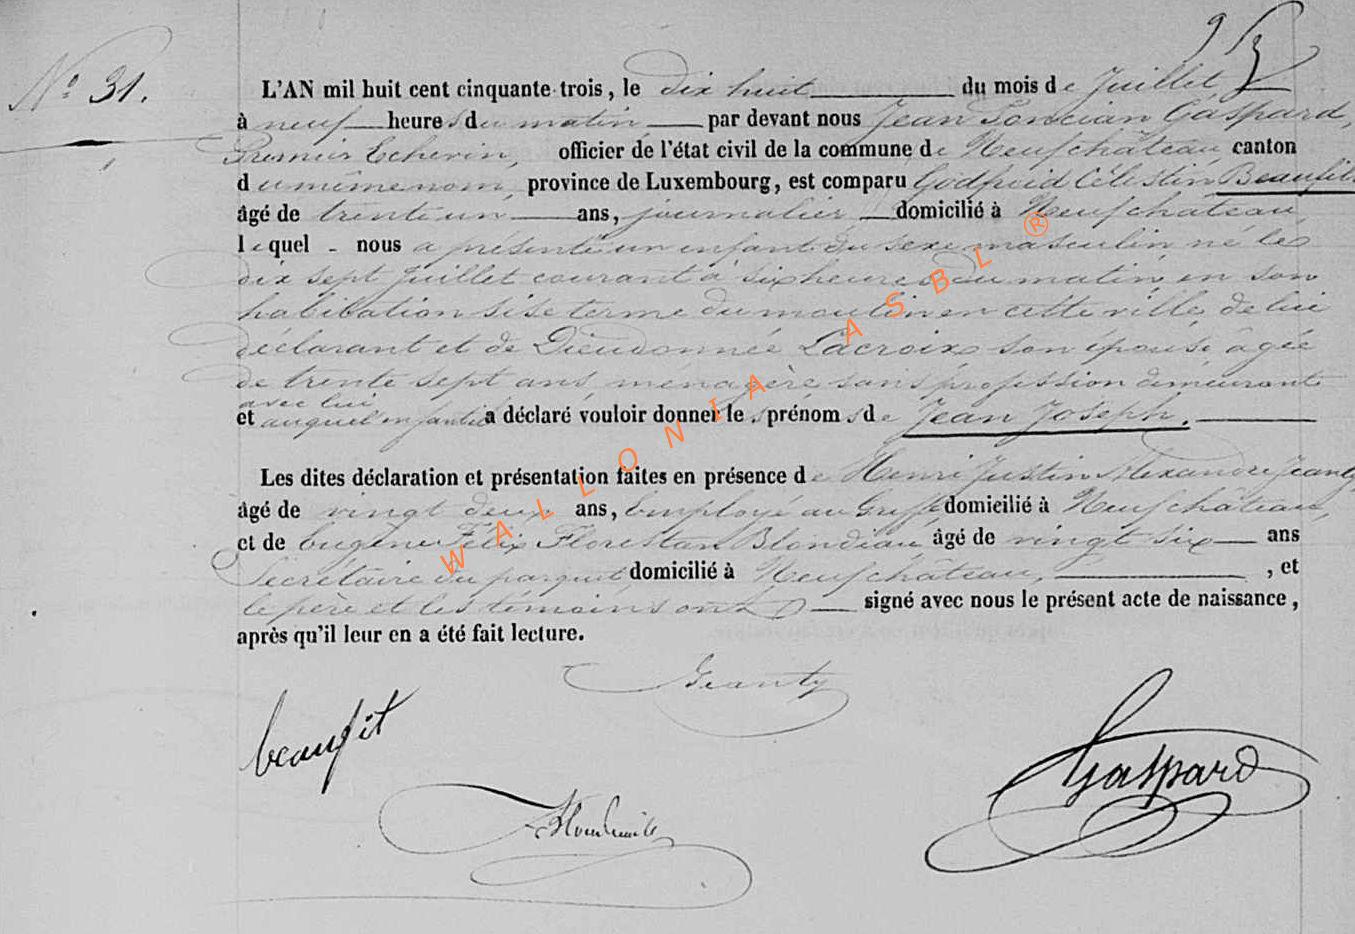 N° 31.
L'AN mil huit cent cinquante-trois, le dix huit du mois de Juillet
à neuf heures du matin par devant nous Jean Poncian Gaspard,
Premier Echevin, officier de l'état civil de la commune de Neufchâteau canton
du même nom, province de Luxembourg, est comparu Godfroid Célestin Beaufit
âgé de trente un ans, journalier domicilié à Neufchateau
lequel nous a présenté un enfant du sexe masculin né le
dix sept Juillet courant à six heures du matin en son
habitation sise terme du moulin en cette ville, de lui
déclarant et de Dieudonnée Lacroix son épouse âgée
de trente sept ans, menagère sans profession demeurant
avec lui
et auquel enfant il a déclaré vouloir donner les prénoms de Jean Joseph.
Les dites déclaration et présentation faites en présence de Henri Justin Alexandre Jeanty
âgé de vingt deux ans, Employé au Greffe domicilié à Neufchâteau,
et de Eugène Félix Florestan Blondiau âgé de vingt six ans
Secrétaire du parquet domicilié à Neufchâteau, , et
le père et les témoins ont signé avec nous le présent acte de naissance,
après qu'il leur en a été fait lecture.
Jeanty
beaufit
Gaspard
WALLONIA ASBL ®